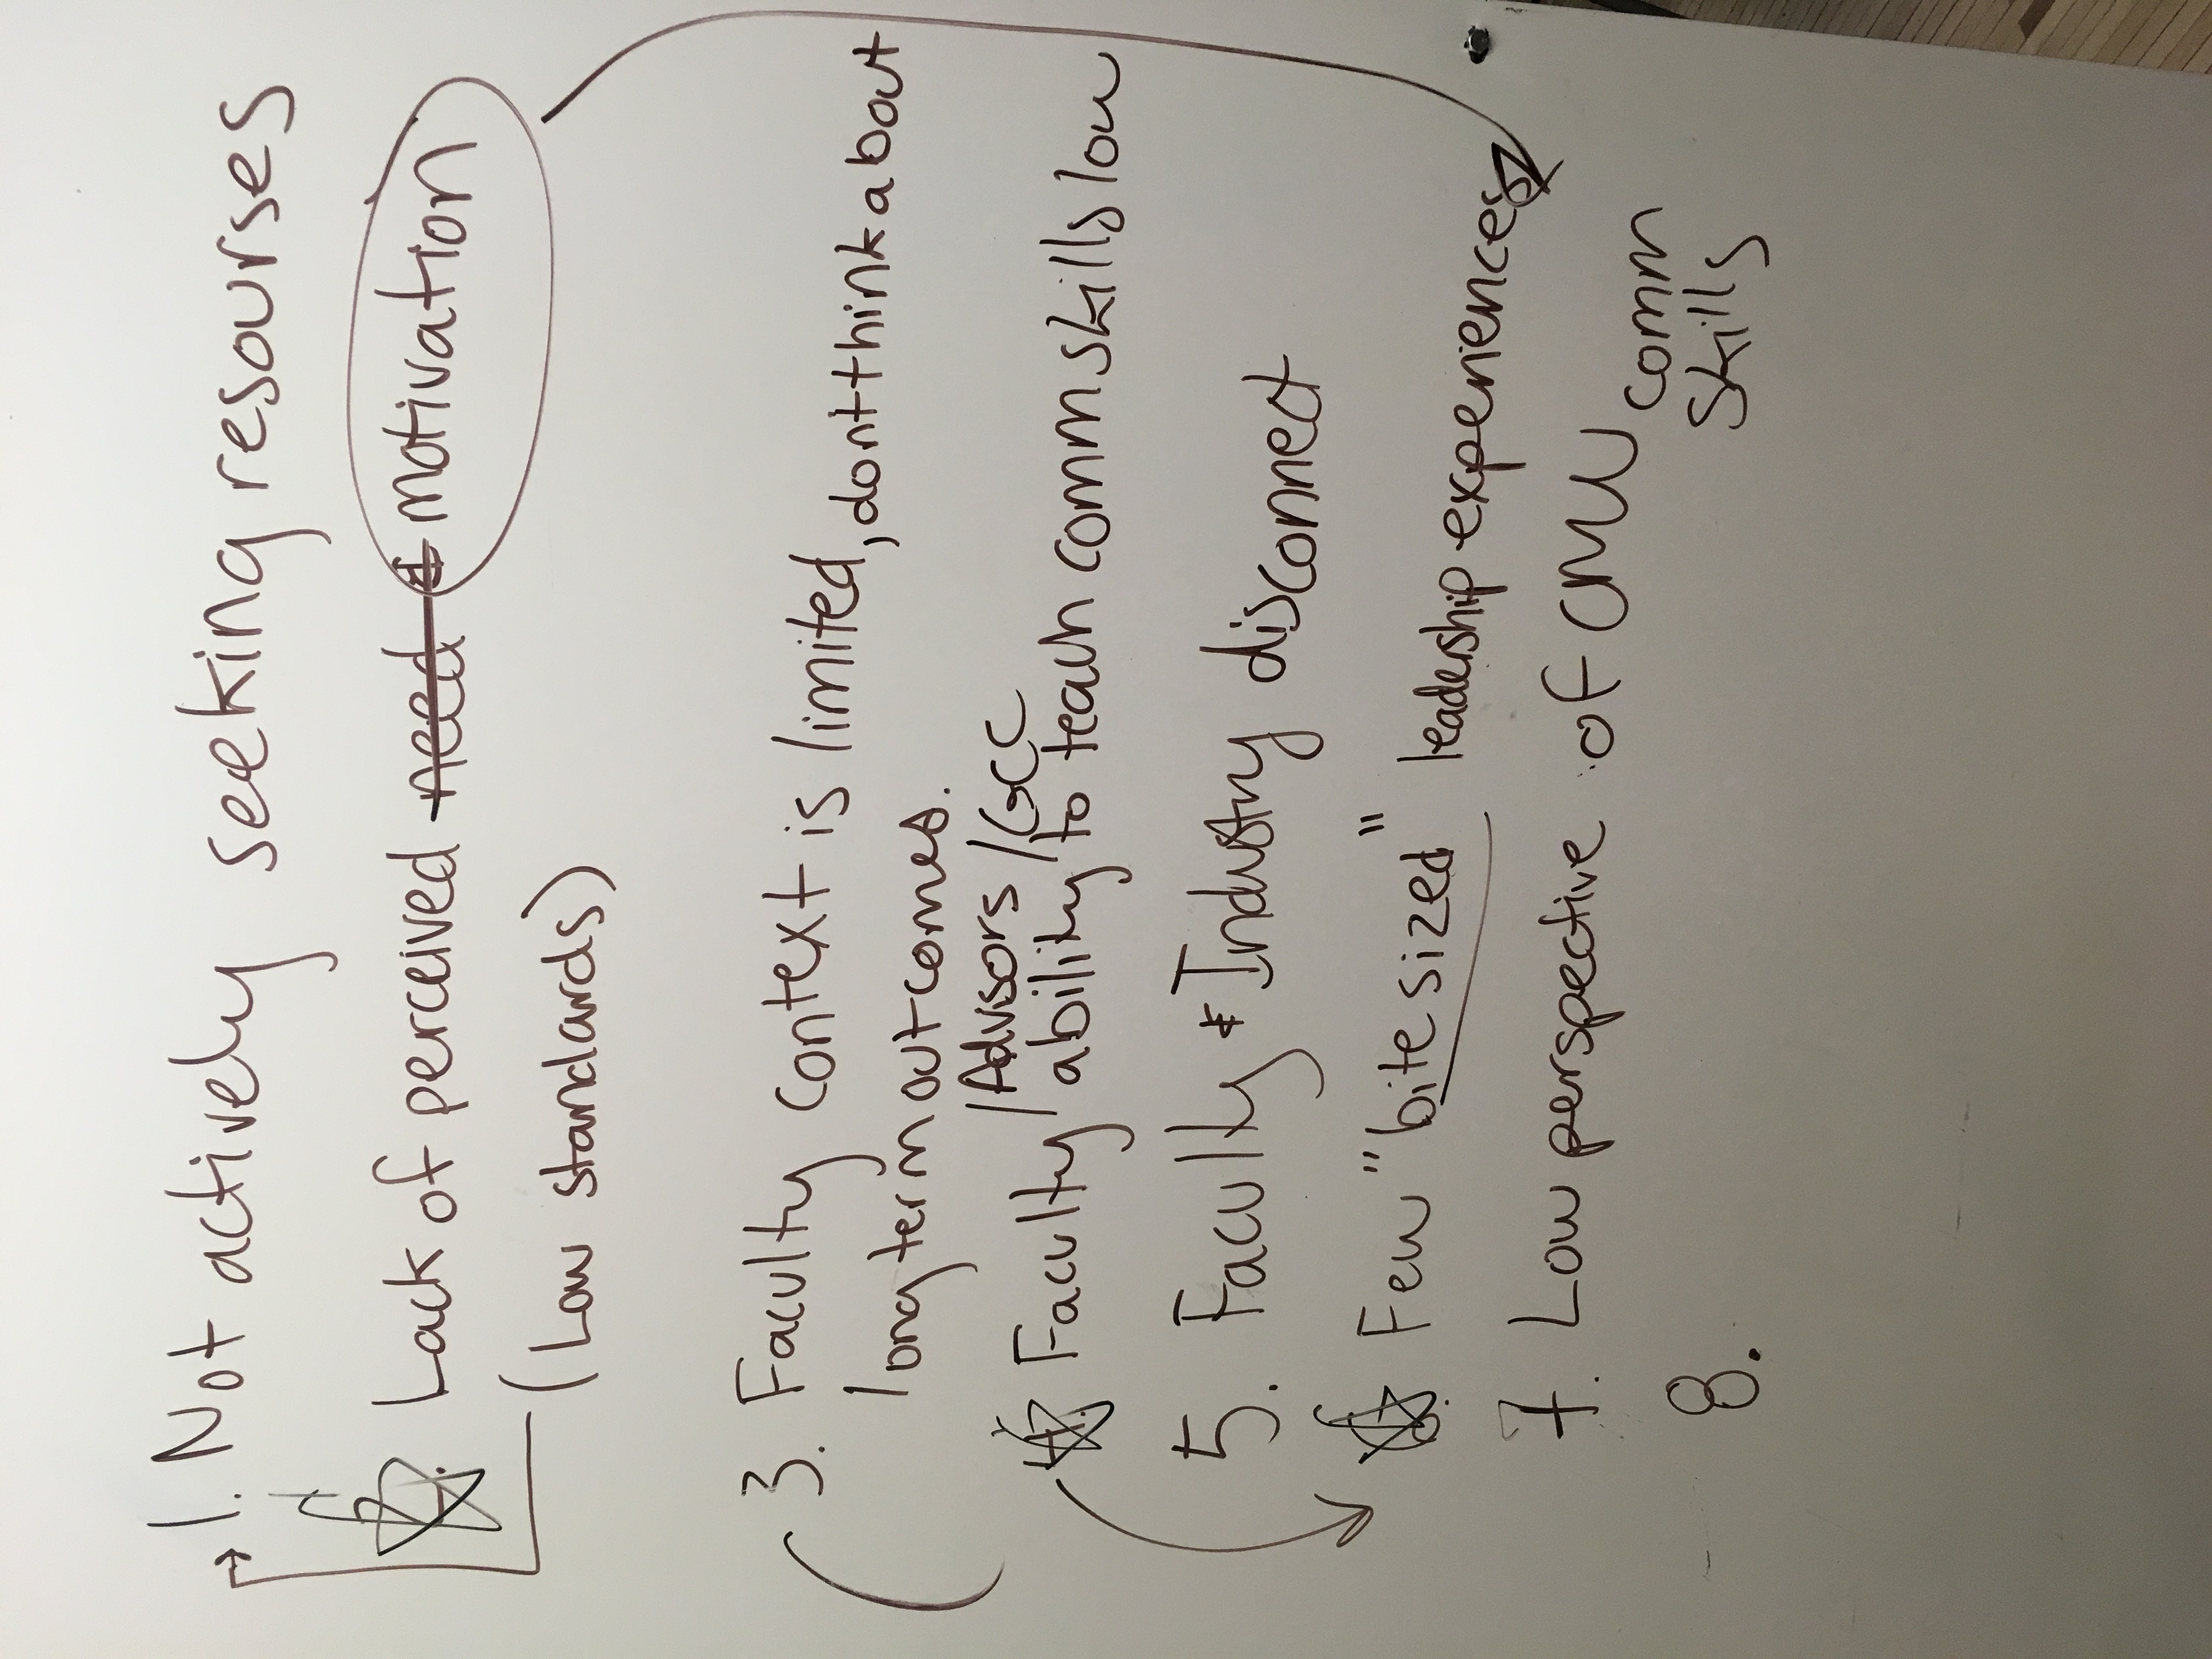 1. Not actively seeking resourses
2. Lack of perceived need & motivation
(Low standards)
3. Faculty context is limited, dont think about
long term outcomes.
/Advisors /GCC
4. Faculty ability to teach comm skills low
5. Faculty & Industry disconnect
6. Few "bite sized" leadership experiences
7. Low perspective of CMU comm
skills
8.